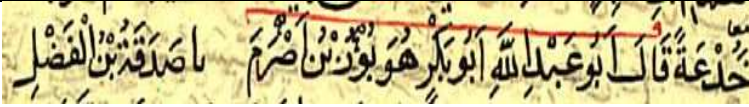 خُدْعَةً قَالَ أَبُو عَبْدِ اللَّهِ أَبُو بَكْرٍ هُوَ بُورُ بْنُ أَصْرَمَ نا صَدَقَةُ بْنُ الْفَضْلِ